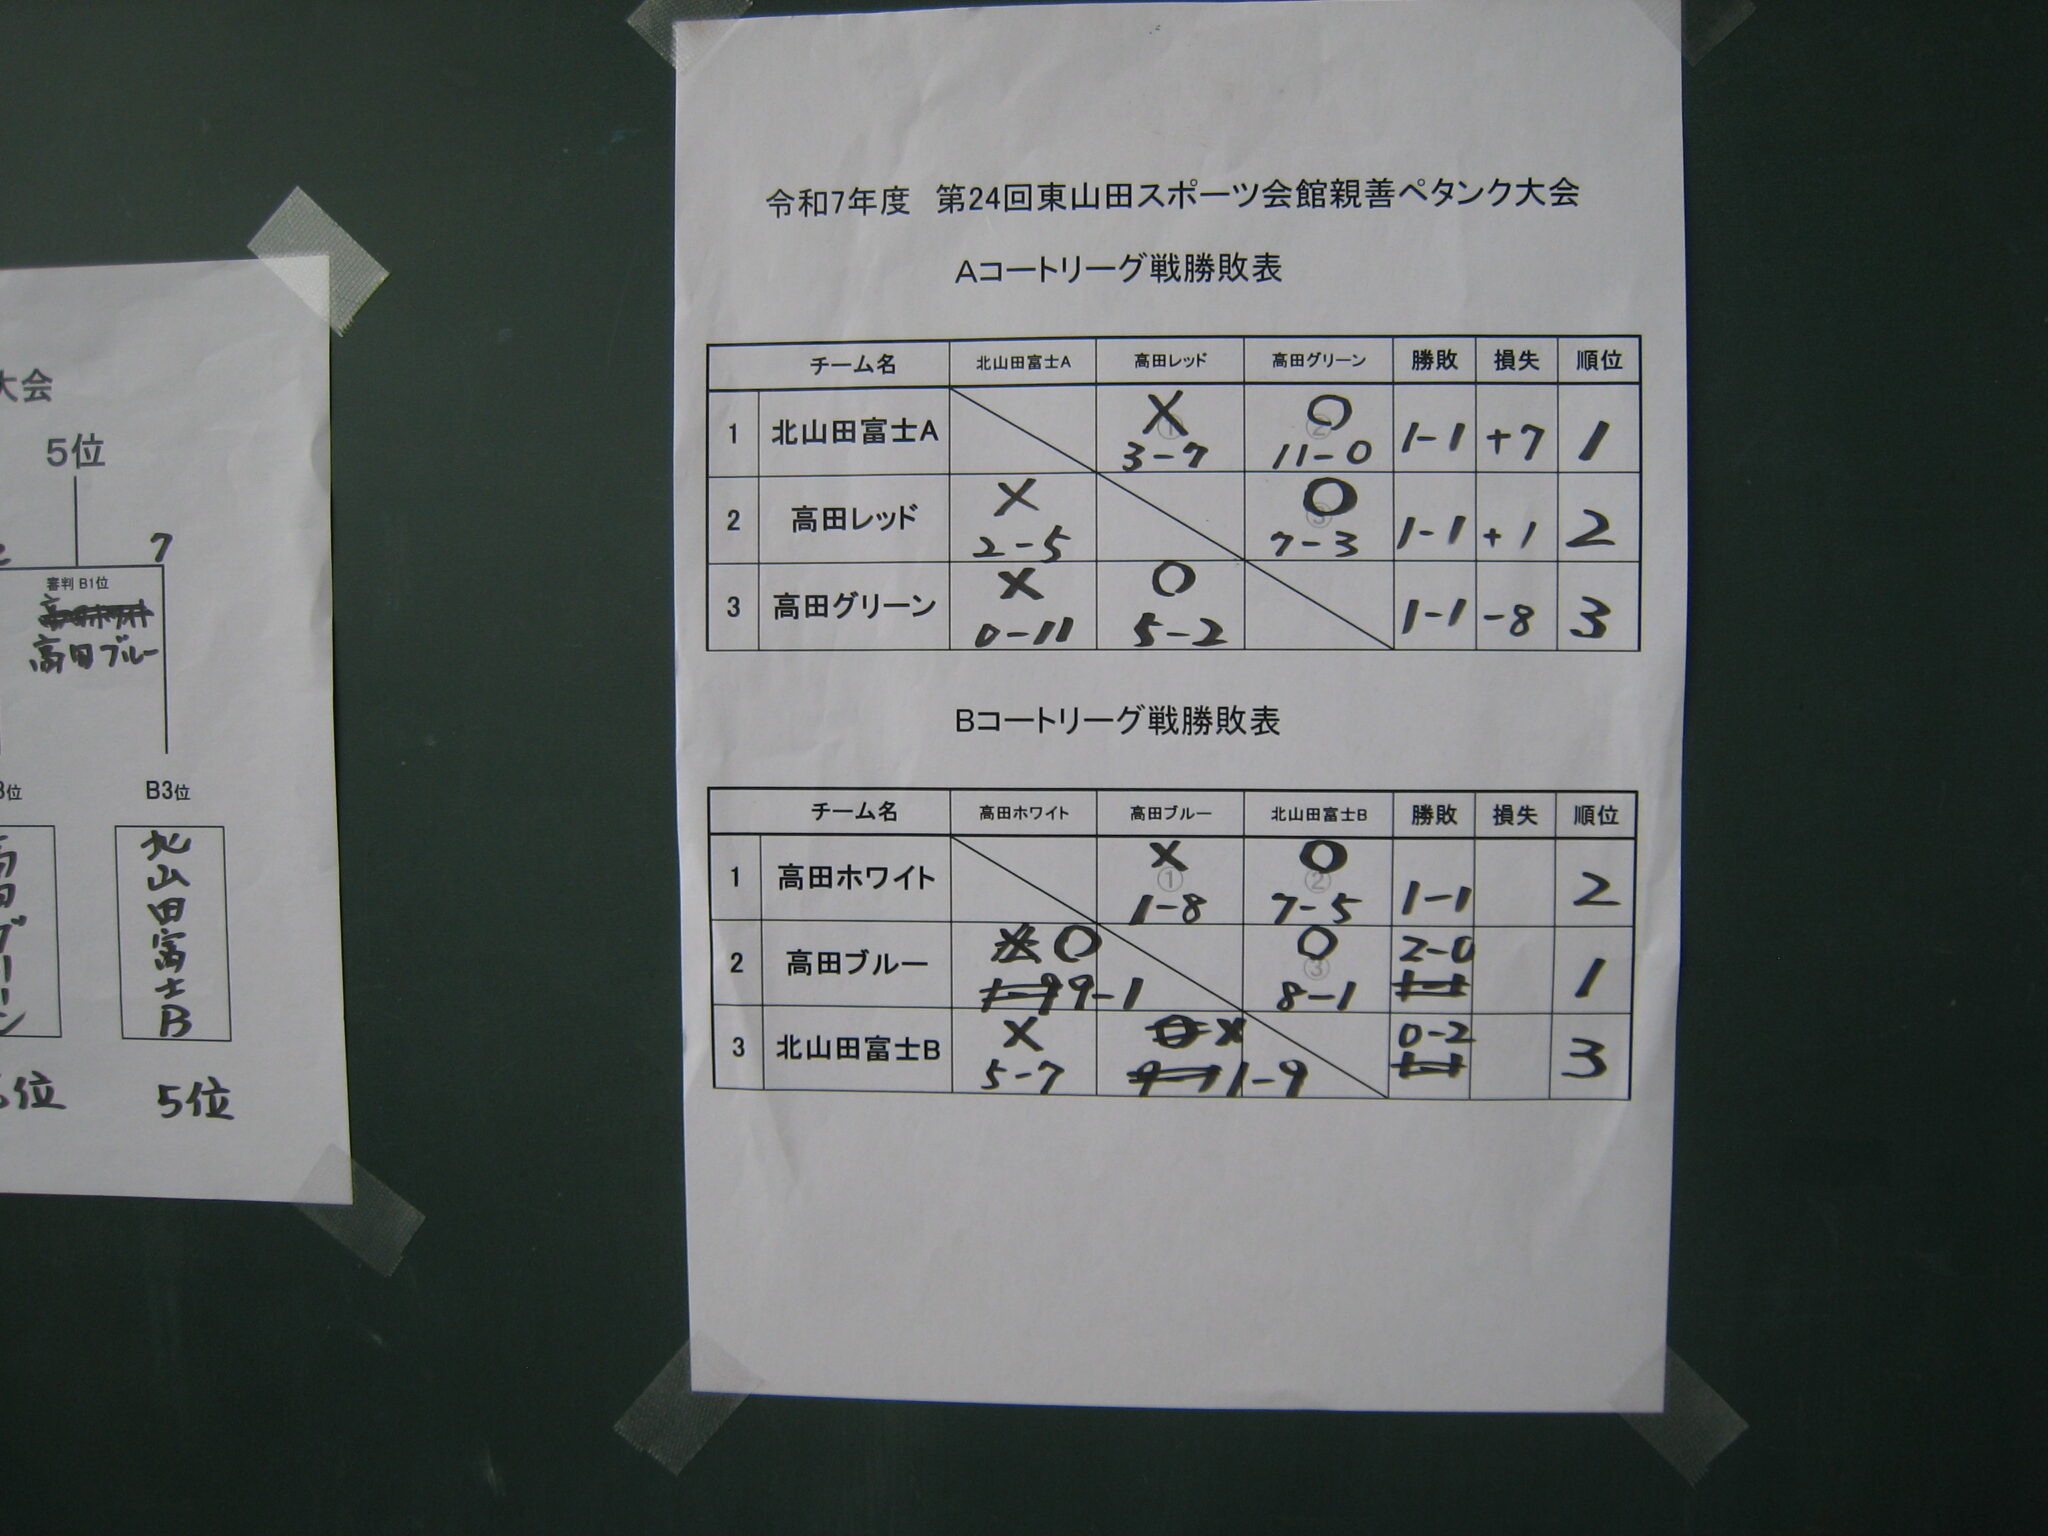 大会
5位
7
審判 B1位
高田ブルー
B3位
北山田富士B
5位
令和7年度 第24回東山田スポーツ会館親善ペタンク大会
Aコートリーグ戦勝敗表
チーム名 北山田富士A 高田レッド 高田グリーン 勝敗 損失 順位
1 北山田富士A X ① 3-7 O ② 11-0 1-1 +7 1
2 高田レッド X 2-5 O ③ 7-3 1-1 +1 2
3 高田グリーン X 0-11 O 5-2 1-1 -8 3
Bコートリーグ戦勝敗表
チーム名 高田ホワイト 高田ブルー 北山田富士B 勝敗 損失 順位
1 高田ホワイト X ① 1-8 O ② 7-5 1-1 2
2 高田ブルー O 9-1 O ③ 8-1 2-0 1
3 北山田富士B X 5-7 X 1-9 0-2 3